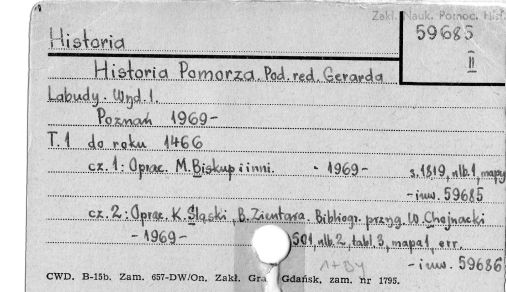 Zakł. Nauk. Pomoc. Hist.
Historia
59685
II
Historia Pomorza. Pod. red. Gerarda
Labudy. Wyd. 1.
Poznań 1969-
T. 1 do roku 1466
cz. 1: Oprac. M. Biskup i inni. - 1969- s. 1819, nlb. 1, mapy
- inw. 59685
cz. 2: Oprac. K. Śląski, B. Zientara. Bibliogr. przyg. W. Chojnacki
- 1969- 501, nlb. 2, tabl. 3, mapa 1, err.
A+BY - inw. 59686
CWD. B-15b. Zam. 657-DW/On. Zakł. Gra Gdańsk, zam. nr 1795.